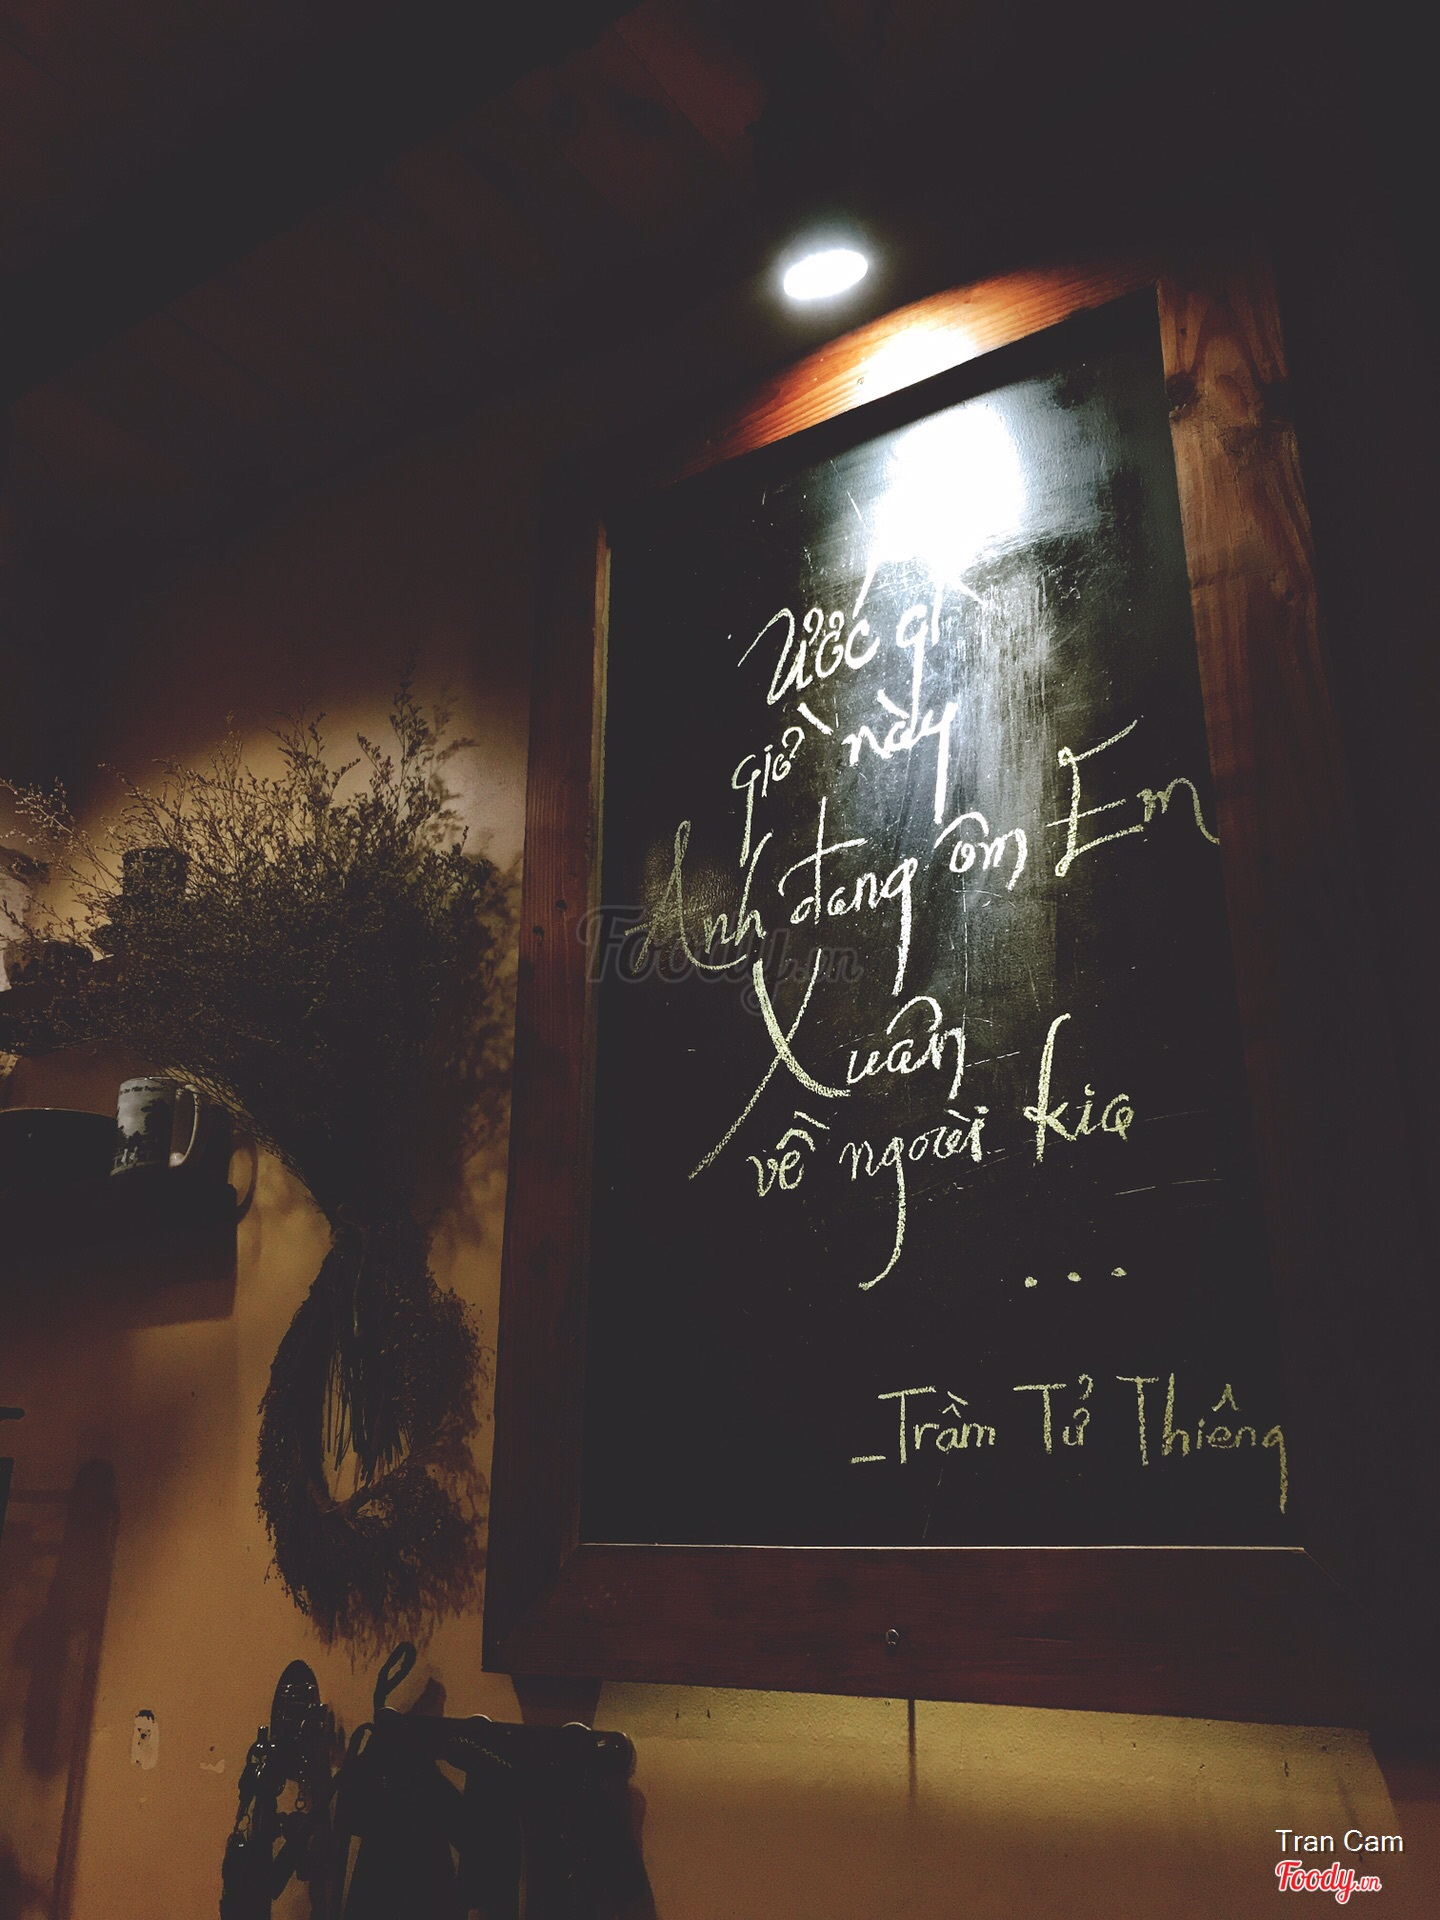 Ước gì
giờ này
Anh đang ôm Em
Xuân
về người kia
...
_Trầm Tử Thiêng
Foody.vn
Tran Cam
Foody.vn